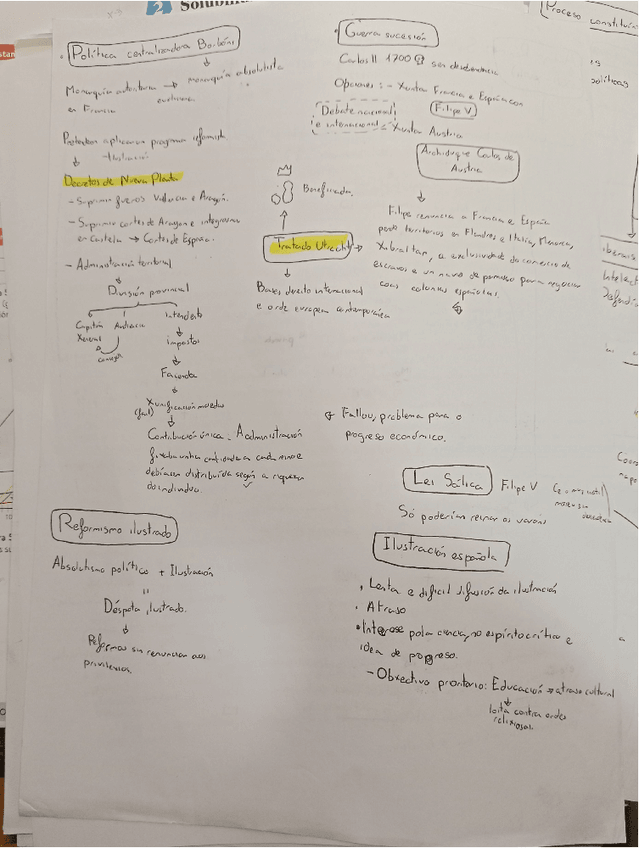 2 Solubili
Política centralizadora Borbóns
Monarquía autoritaria → monarquía absolutista
en Francia
Pretenden aplicar un programa reformista
Ilustración
Decretos de Nueva Planta
- Suprimir fueros Valencia e Aragón.
- Suprimir cortes de Aragon e integrarse
en Castela → Cortes de España.
- Administración territorial
División provincial
Capitán Xeneral
Audiencia
Intendente
impostos
Facenda
Xunificación
Contribución única. A administración
debían ser distribuída según a riqueza
do individuo.
Reformismo ilustrado
Absolutismo político + Ilustración
Déspota ilustrado.
Reformas sin renunciar aos
privilexios.
Guerra sucesión
Carlos II 1700 sen descendencia
Opcions: - Xuntar Francia e España con
Filipe V
Debate nacional
e internacional
- Xuntar Austria
Archiduque Carlos de
Austria
Beneficiada
Tratado Utrecht →
Filipe renuncia a Francia e España
perde territorios en Flandres e Italia, Menorca,
Xibraltar, a exclusividade do comercio de
escravos e un navío de permiso para negociar
coas colonias españolas.
Bases dereito internacional
e orde europea contemporánea
Fallou, problema para o
progreso económico.
Lei Sálica Filipe V
Só poderían reinar os varóns
Ilustración española
Lenta e dificil difusión da ilustración
Atraso
Interese pola ciencia, no espírito crítico e
idea de progreso.
- Obxectivo prioritario: Educación ≠ atraso cultural
loita contra ordes
relixiosas.
Proceso constituín
políticas